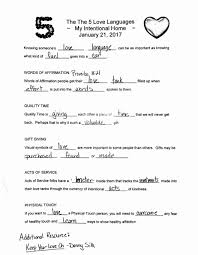 5
The The 5 Love Languages
~ My Intentional Home ~
January 21, 2017
Knowing someone's love language can be as important as knowing
what kind of fuel goes into a car.
WORDS OF AFFIRMATION Proverbs 16:21
Words of Affirmation people get their love tank filled up when
effort is put into the words spoken to them.
QUALITY TIME
Quality Time is giving each other a piece of time that we will never get
back. Perhaps that is why it's such a valuable gift
GIFT GIVING
Visual symbols of love are more important to some people than others. Gifts may be
purchased, found or made.
ACTS OF SERVICE
Acts of Service folks have as their tanks the made
their love running through the literacy of acts of kindness.
PHYSICAL TOUCH
If you want to love a Physical Touch person, you will need to overcome any fear
of healthy touch and learn to become aware
Additional Resource:
Keep Your Love On - Danny Silk